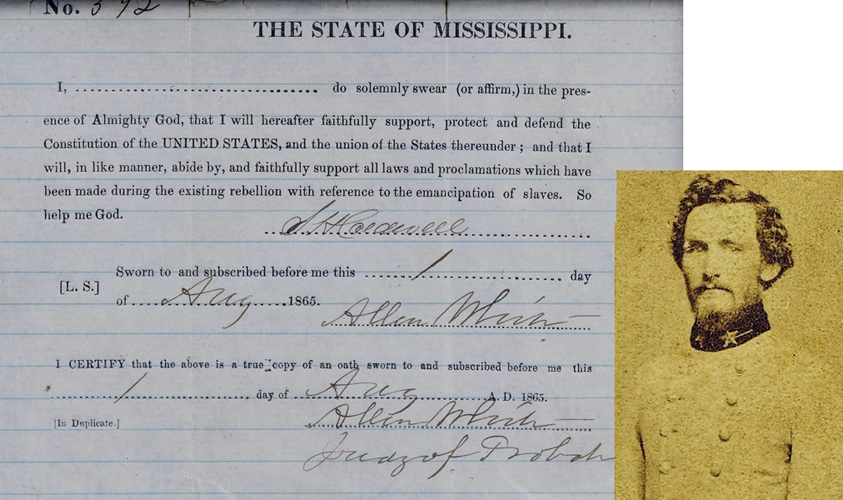 No. 392
THE STATE OF MISSISSIPPI.
I, ........................................ do solemnly swear (or affirm,) in the pres-
ence of Almighty God, that I will hereafter faithfully support, protect and defend the
Constitution of the UNITED STATES, and the union of the States thereunder ; and that I
will, in like manner, abide by, and faithfully support all laws and proclamations which have
been made during the existing rebellion with reference to the emancipation of slaves. So
help me God.
Sworn to and subscribed before me this 1 day
[L. S.]
of Aug 1865.
Allen White
I CERTIFY that the above is a true copy of an oath sworn to and subscribed before me this
1 day of Aug A. D. 1865.
[In Duplicate.] Allen White
Judge of Probate